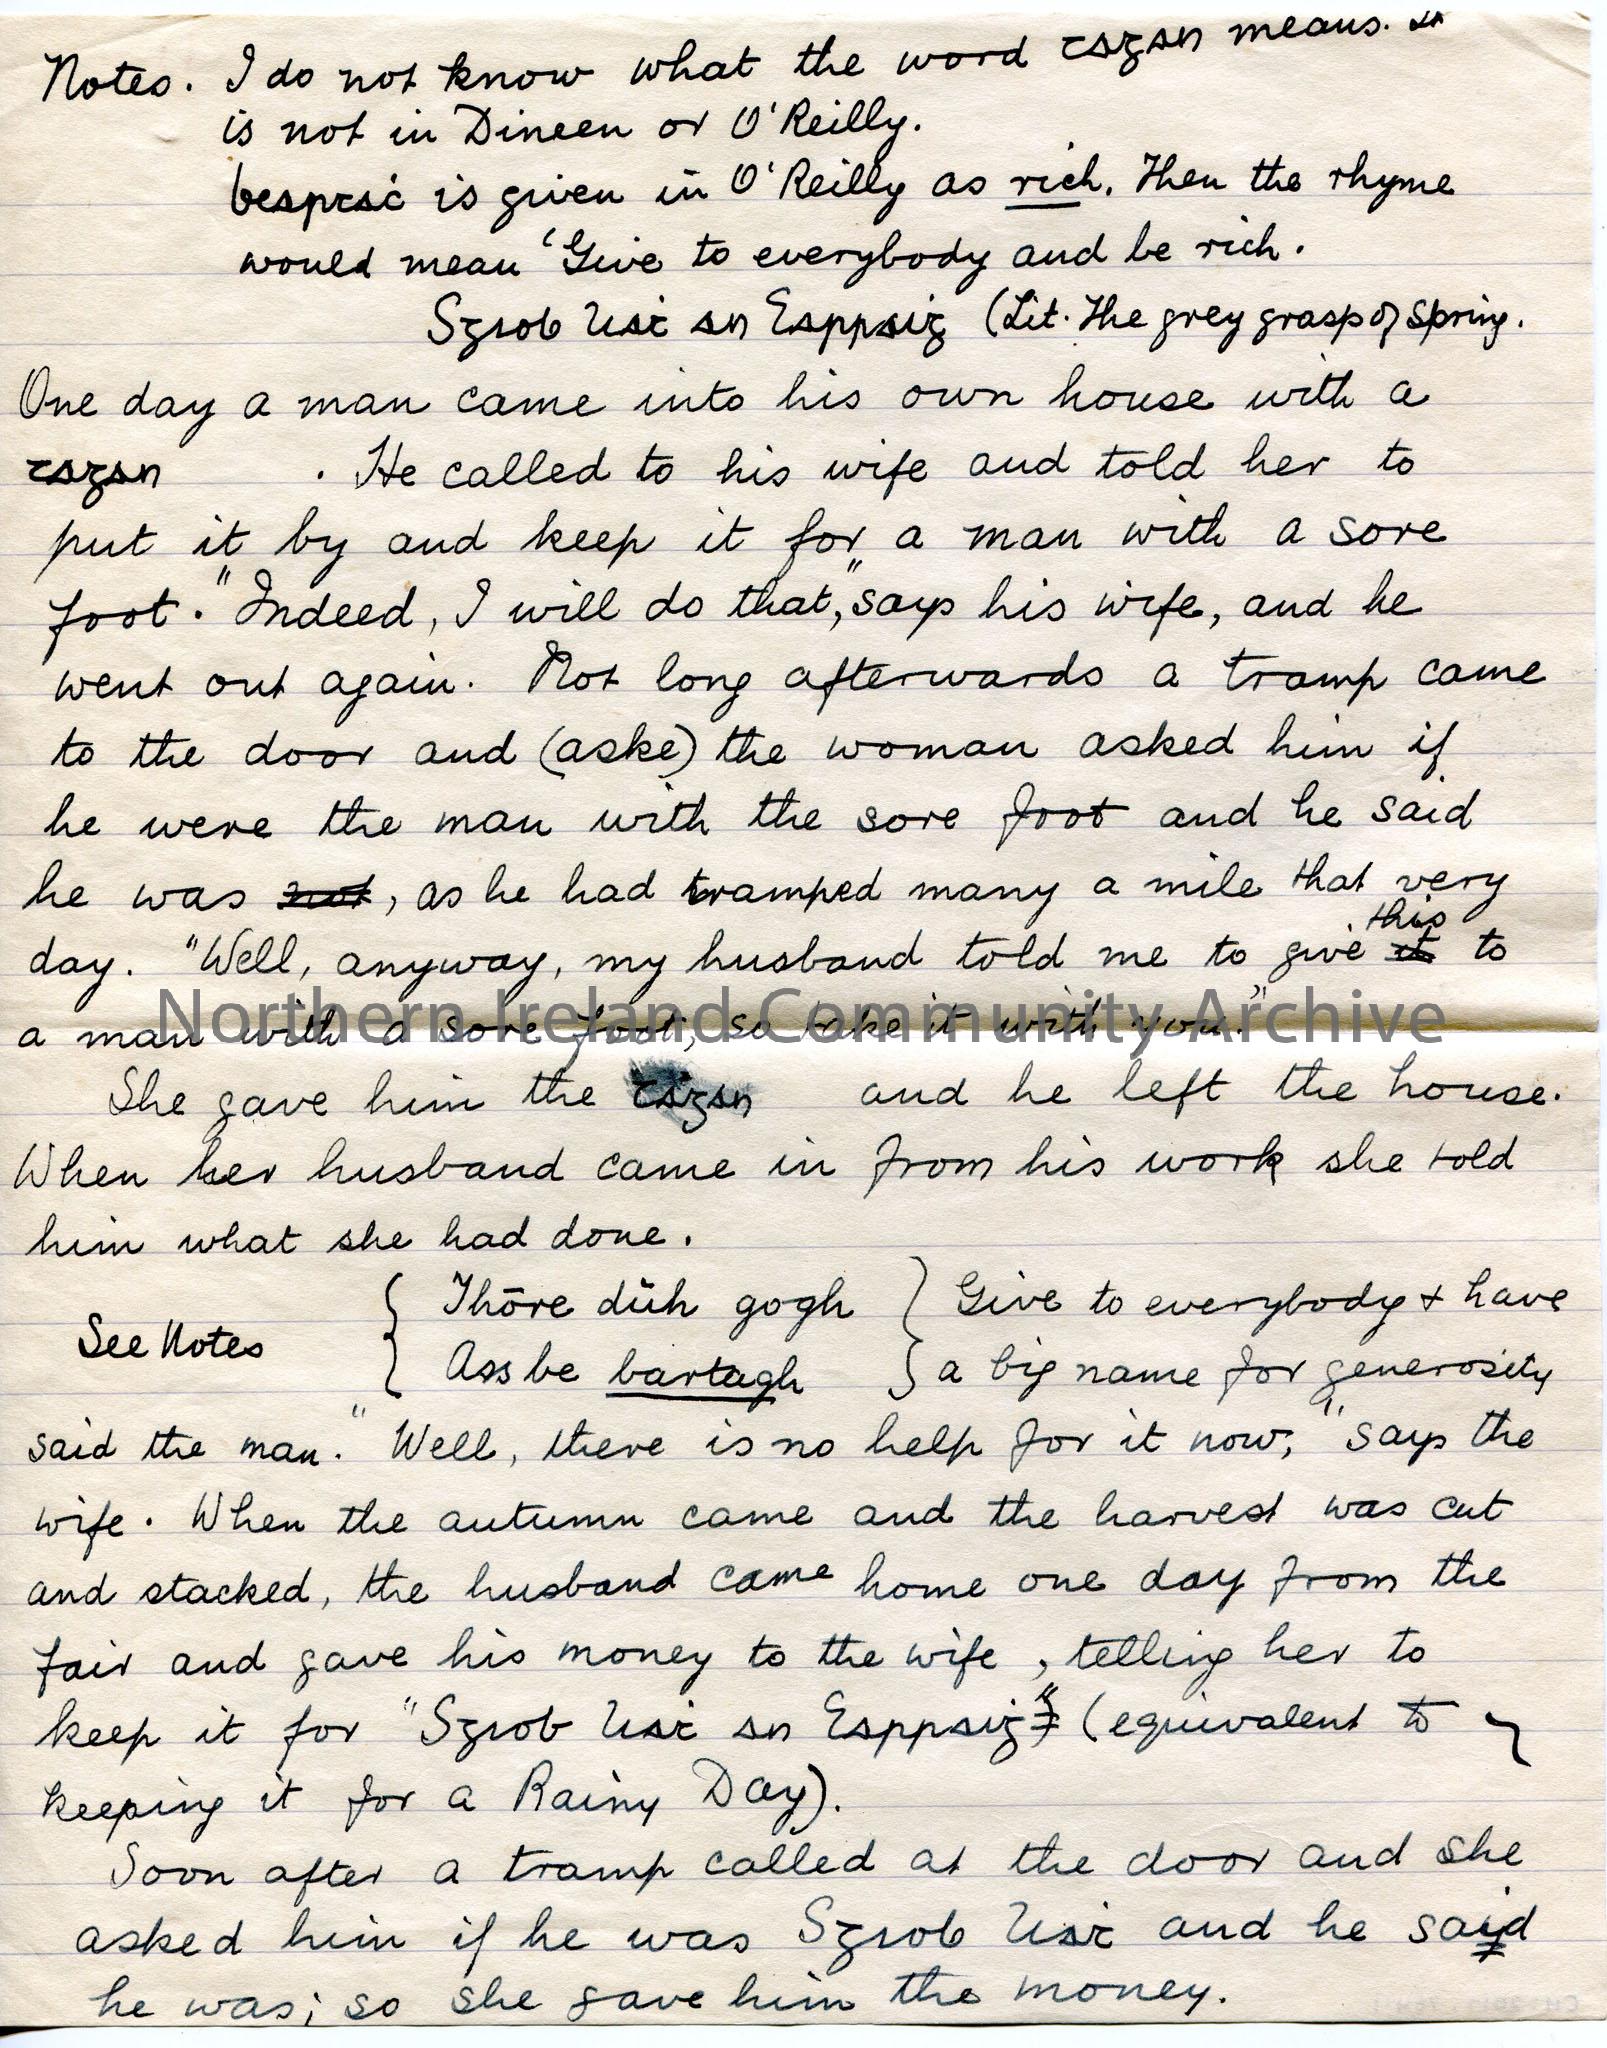 Notes. I do not know what the word ꞇaᵹan means. It
is not in Dineen or O'Reilly.
beaꞃꞇaċ is given in O'Reilly as rich. Then the rhyme
would mean 'Give to everybody and be rich.
Sᵹꞃob Liaꞇ an Eaꞃꞃaiᵹ (Lit. The grey grasp of Spring.
One day a man came into his own house with a
ꞇaᵹan . He called to his wife and told her to
put it by and keep it for a man with a sore
foot. "Indeed, I will do that," says his wife, and he
went out again. Not long afterwards a tramp came
to the door and (aske) the woman asked him if
he were the man with the sore foot and he said
he was not, as he had tramped many a mile that very
day. "Well, anyway, my husband told me to give it this to
a man with a sore foot, so take it with you."
She gave him the ꞇaᵹan and he left the house.
When her husband came in from his work she told
him what she had done.
See Notes { Thōre dūh gogh } Give to everybody & have
{ Ass be bartagh } a big name for generosity
said the man. "Well, there is no help for it now," says the
wife. When the autumn came and the harvest was cut
and stacked, the husband came home one day from the
fair and gave his money to the wife, telling her to
keep it for "Sᵹꞃob Liaꞇ an Eaꞃꞃaiᵹ" (equivalent to
keeping it for a Rainy Day).
Soon after a tramp called at the door and she
asked him if he was Sᵹꞃob Liaꞇ and he said
he was; so she gave him the money.
Northern Ireland Community Archive